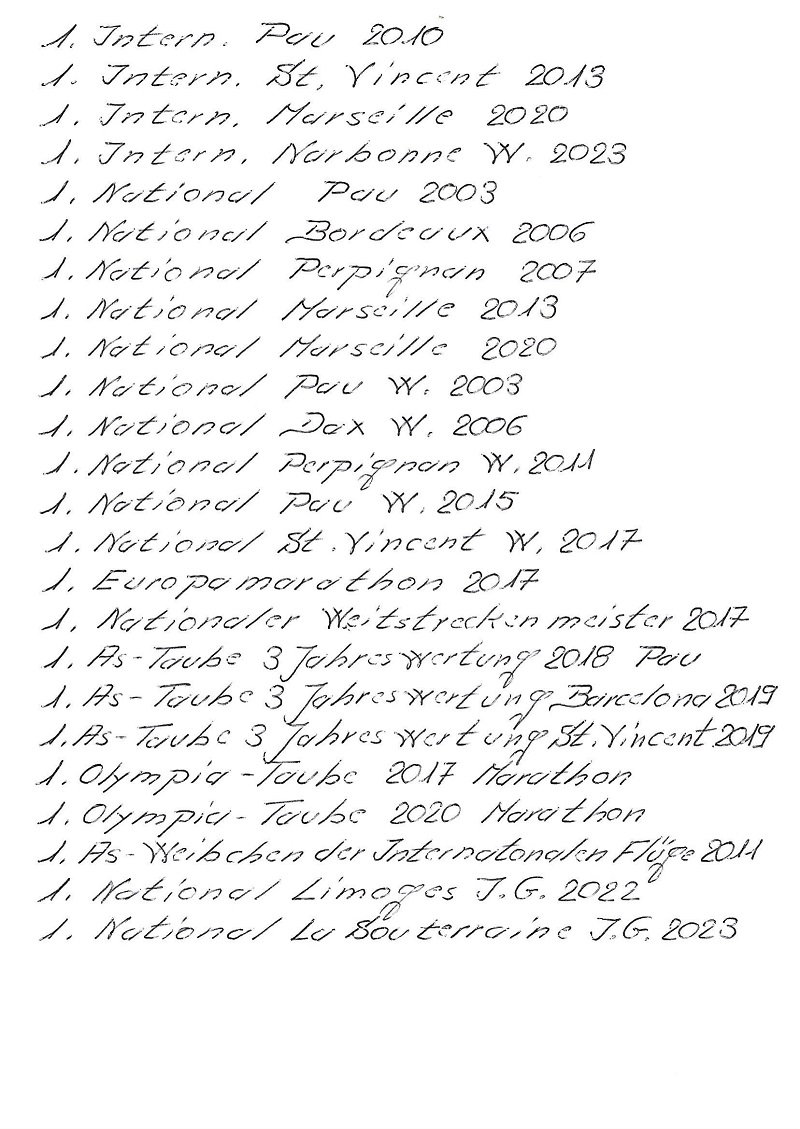 1. Intern. Pau 2010
1. Intern. St, Vincent 2013
1. Intern. Marseille 2020
1. Intern. Narbonne W. 2023
1. National Pau 2003
1. National Bordeaux 2006
1. National Perpignan 2007
1. National Marseille 2013
1. National Marseille 2020
1. National Pau W. 2003
1. National Dax W. 2006
1. National Perpignan W. 2011
1. National Pau W. 2015
1. National St. Vincent W. 2017
1. Europamarathon 2017
1. Nationaler Weitstreckenmeister 2017
1. As-Taube 3 Jahreswertung 2018 Pau
1. As-Taube 3 Jahreswertung Barcelona 2019
1. As-Taube 3 Jahreswertung St. Vincent 2019
1. Olympia-Taube 2017 Marathon
1. Olympia-Taube 2020 Marathon
1. As-Weibchen der Internatonalen Flüge 2011
1. National Limoges J.G. 2022
1. National La Souterraine J.G. 2023